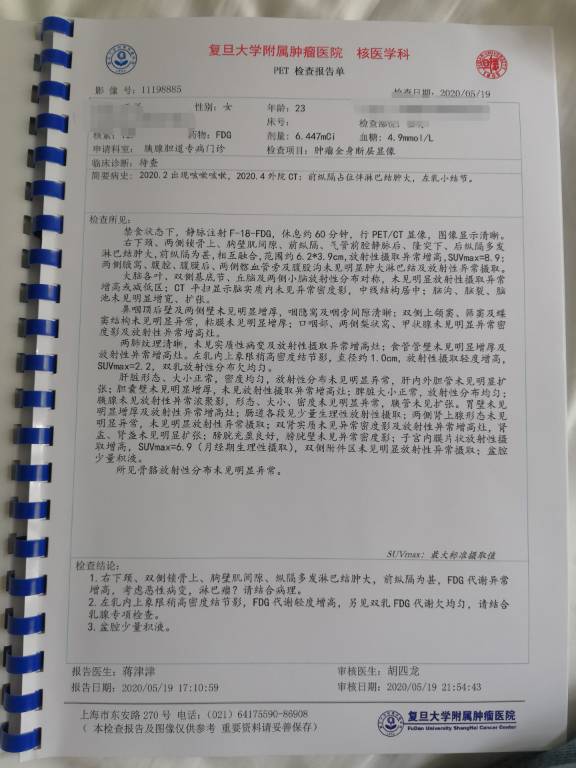 复旦大学附属肿瘤医院 核医学科
PET 检查报告单
影 像 号: 11198885 检查日期: 2020/05/19
性别: 女 年龄: 23
床号:
药物: FDG 剂量: 6.447mCi 血糖: 4.9mmol/L
申请科室: 胰腺胆道专病门诊 检查项目: 肿瘤全身断层显像
临床诊断: 待查
简要病史: 2020.2 出现咳嗽咳嗽, 2020.4 外院 CT: 前纵隔占位伴淋巴结肿大, 左乳小结节。
检查所见:
禁食状态下, 静脉注射 F-18-FDG, 休息约 60 分钟, 行 PET/CT 显像, 图像显示清晰。
右下颈、两侧锁骨上、胸壁肌间隙、前纵隔、气管前腔静脉后、隆突下、后纵隔多发
淋巴结肿大, 前纵隔为甚, 相互融合, 范围约 6.2*3.9cm, 放射性摄取异常增高, SUVmax=8.9;
两侧腋窝、腹腔、腹膜后、两侧髂血管旁及腹股沟未见明显肿大淋巴结及放射性异常摄取。
大脑各叶、双侧基底节、丘脑及两侧小脑放射性分布对称, 未见明显放射性摄取异常
增高或减低区; CT 平扫显示脑实质内未见异常密度影, 中线结构居中; 脑沟、脑裂、脑
池未见明显增宽、扩张。
鼻咽顶后壁及两侧壁未见明显增厚, 咽隐窝及咽旁间隙清晰; 双侧上颌窦、筛窦及蝶
窦结构未见明显异常, 粘膜未见明显增厚; 口咽部、两侧梨状窝、甲状腺未见明显异常密
度影及放射性异常增高灶。
两肺纹理清晰, 未见实质性病变及放射性摄取异常增高灶; 食管管壁未见明显增厚及
放射性异常增高灶。左乳内上象限稍高密度结节影, 直径约 1.0cm, 放射性摄取轻度增高,
SUVmax=2.2, 双乳放射性分布欠均匀。
肝脏形态、大小正常, 密度均匀, 放射性分布未见明显异常, 肝内外胆管未见明显扩
张; 胆囊壁未见明显增厚, 未见放射性摄取异常增高灶; 脾脏大小正常, 放射性分布均匀;
胰腺未见放射性异常浓聚影, 形态、大小、密度未见明显异常, 胰管未见扩张。胃壁未见
明显增厚及放射性异常增高灶; 肠道各段见少量生理性放射性摄取; 两侧肾上腺形态未见
明显异常, 未见明显放射性异常摄取; 双肾实质未见异常密度影及放射性异常增高灶, 肾
盂、肾盏未见明显扩张; 膀胱充盈良好, 膀胱壁未见异常密度影; 子宫内膜片状放射性摄
取增高, SUVmax=6.9 (月经期生理性摄取), 双侧附件区未见明显放射性异常摄取; 盆腔
少量积液。
所见骨骼放射性分布未见明显异常。
SUVmax: 最大标准摄取值
检查结论:
1. 右下颈、双侧锁骨上、胸壁肌间隙、纵隔多发淋巴结肿大, 前纵隔为甚, FDG 代谢异常
增高, 考虑恶性病变, 淋巴瘤? 请结合病理。
2. 左乳内上象限稍高密度结节影, FDG 代谢轻度增高, 另见双乳 FDG 代谢欠均匀, 请结合
乳腺专项检查。
3. 盆腔少量积液。
报告医生: 蒋津津 审核医生: 胡四龙
报告日期: 2020/05/19 17:10:59 审核日期: 2020/05/19 21:54:43
上海市东安路 270 号 电话: (021) 64175590-86908
( 本检查报告及图像仅供参考 重要资料请妥善保存)
复旦大学附属肿瘤医院
FuDan University ShangHai Cancer Center